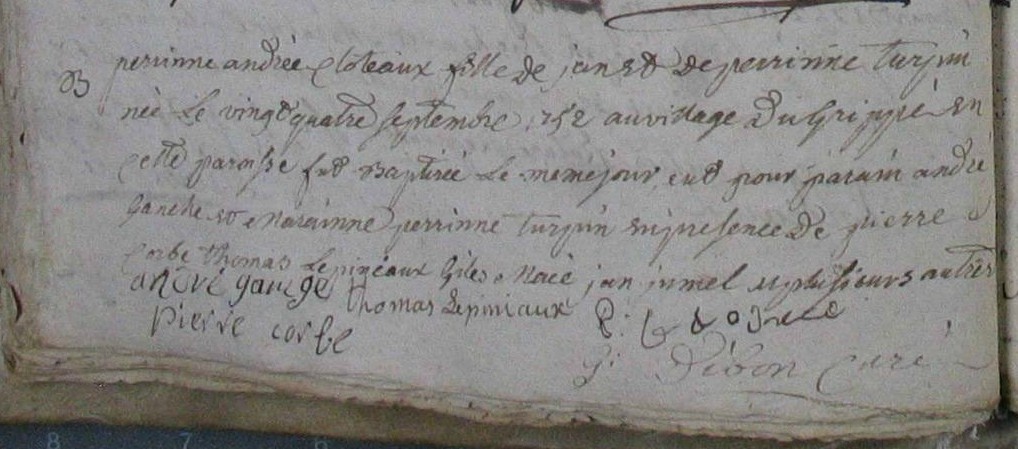 B perrinne andrée cloteaux fille de jan et de perrinne turpin
née le vingt quatre septembre 1752 au village du grippé en
cette paroisse fut baptisée le meme jour eut pour parain andré
ganche et maräinne perrinne turpin en presence de pierre
corbe thomas Lepineaux Giles macé jan jumel et plusieurs autres
andré gange thomas Lepiniaux
pierre corbe
curé